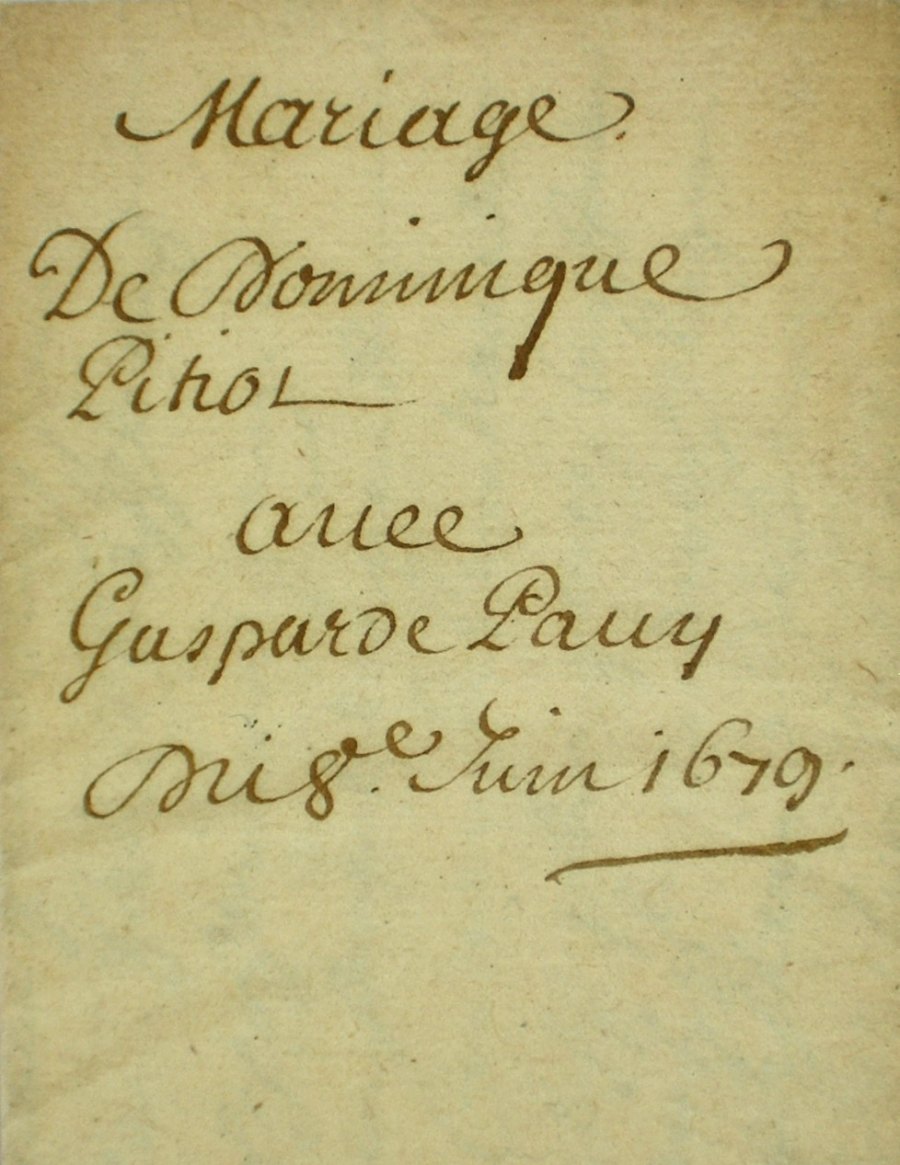 Mariage.
De Dominique
Pitiot
auec
Gasparde Pauy
Du 8.e Juin 1679.